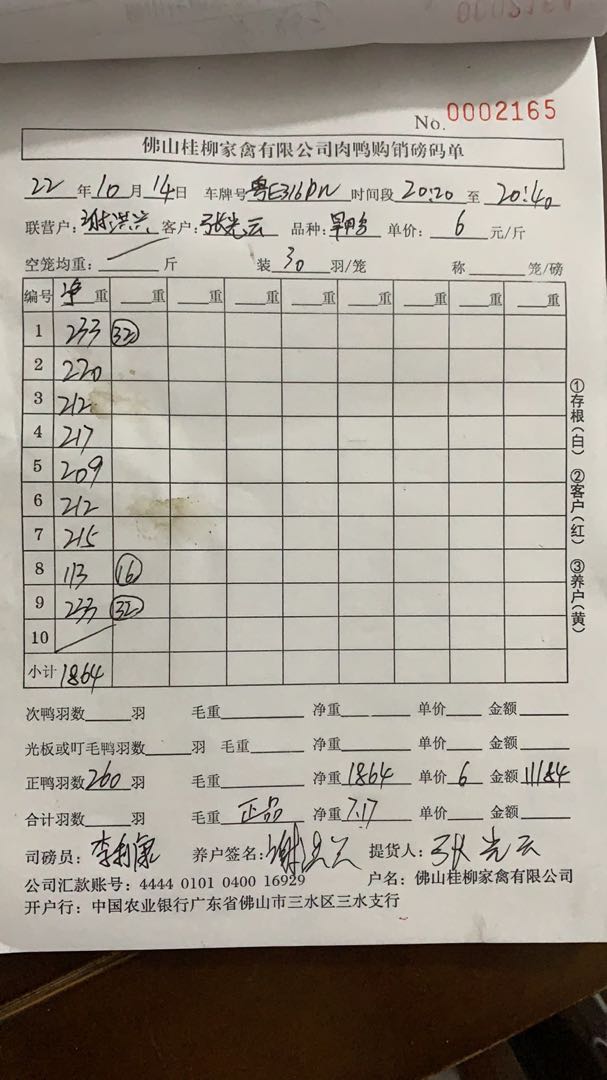 No. 0002165
佛山桂柳家禽有限公司肉鸭购销磅码单
22年10月14日 车牌号粤E316DN 时间段20:20至20:40
联营户:谢洪兴 客户:张光云 品种:旱鸭 单价:6元/斤
空笼均重:斤 装30羽/笼 称笼/磅
编号 净重 重 重 重 重 重 重 重 重
1 233 32
2 220
3 212
4 217
5 209
6 212
7 215
8 113 16
9 233 32
10
小计 1864
次鸭羽数羽 毛重 净重 单价 金额
光板或叮毛鸭羽数羽 毛重 净重 单价 金额
正鸭羽数260羽 毛重 净重1864 单价6 金额11184
合计羽数羽 毛重正品 净重7.17 单价 金额
司磅员:李利康 养户签名:谢洪兴 提货人:张光云
公司汇款账号:4444 0101 0400 16929 户名:佛山桂柳家禽有限公司
开户行:中国农业银行广东省佛山市三水区三水支行
①存根(白) ②客户(红) ③养户(黄)